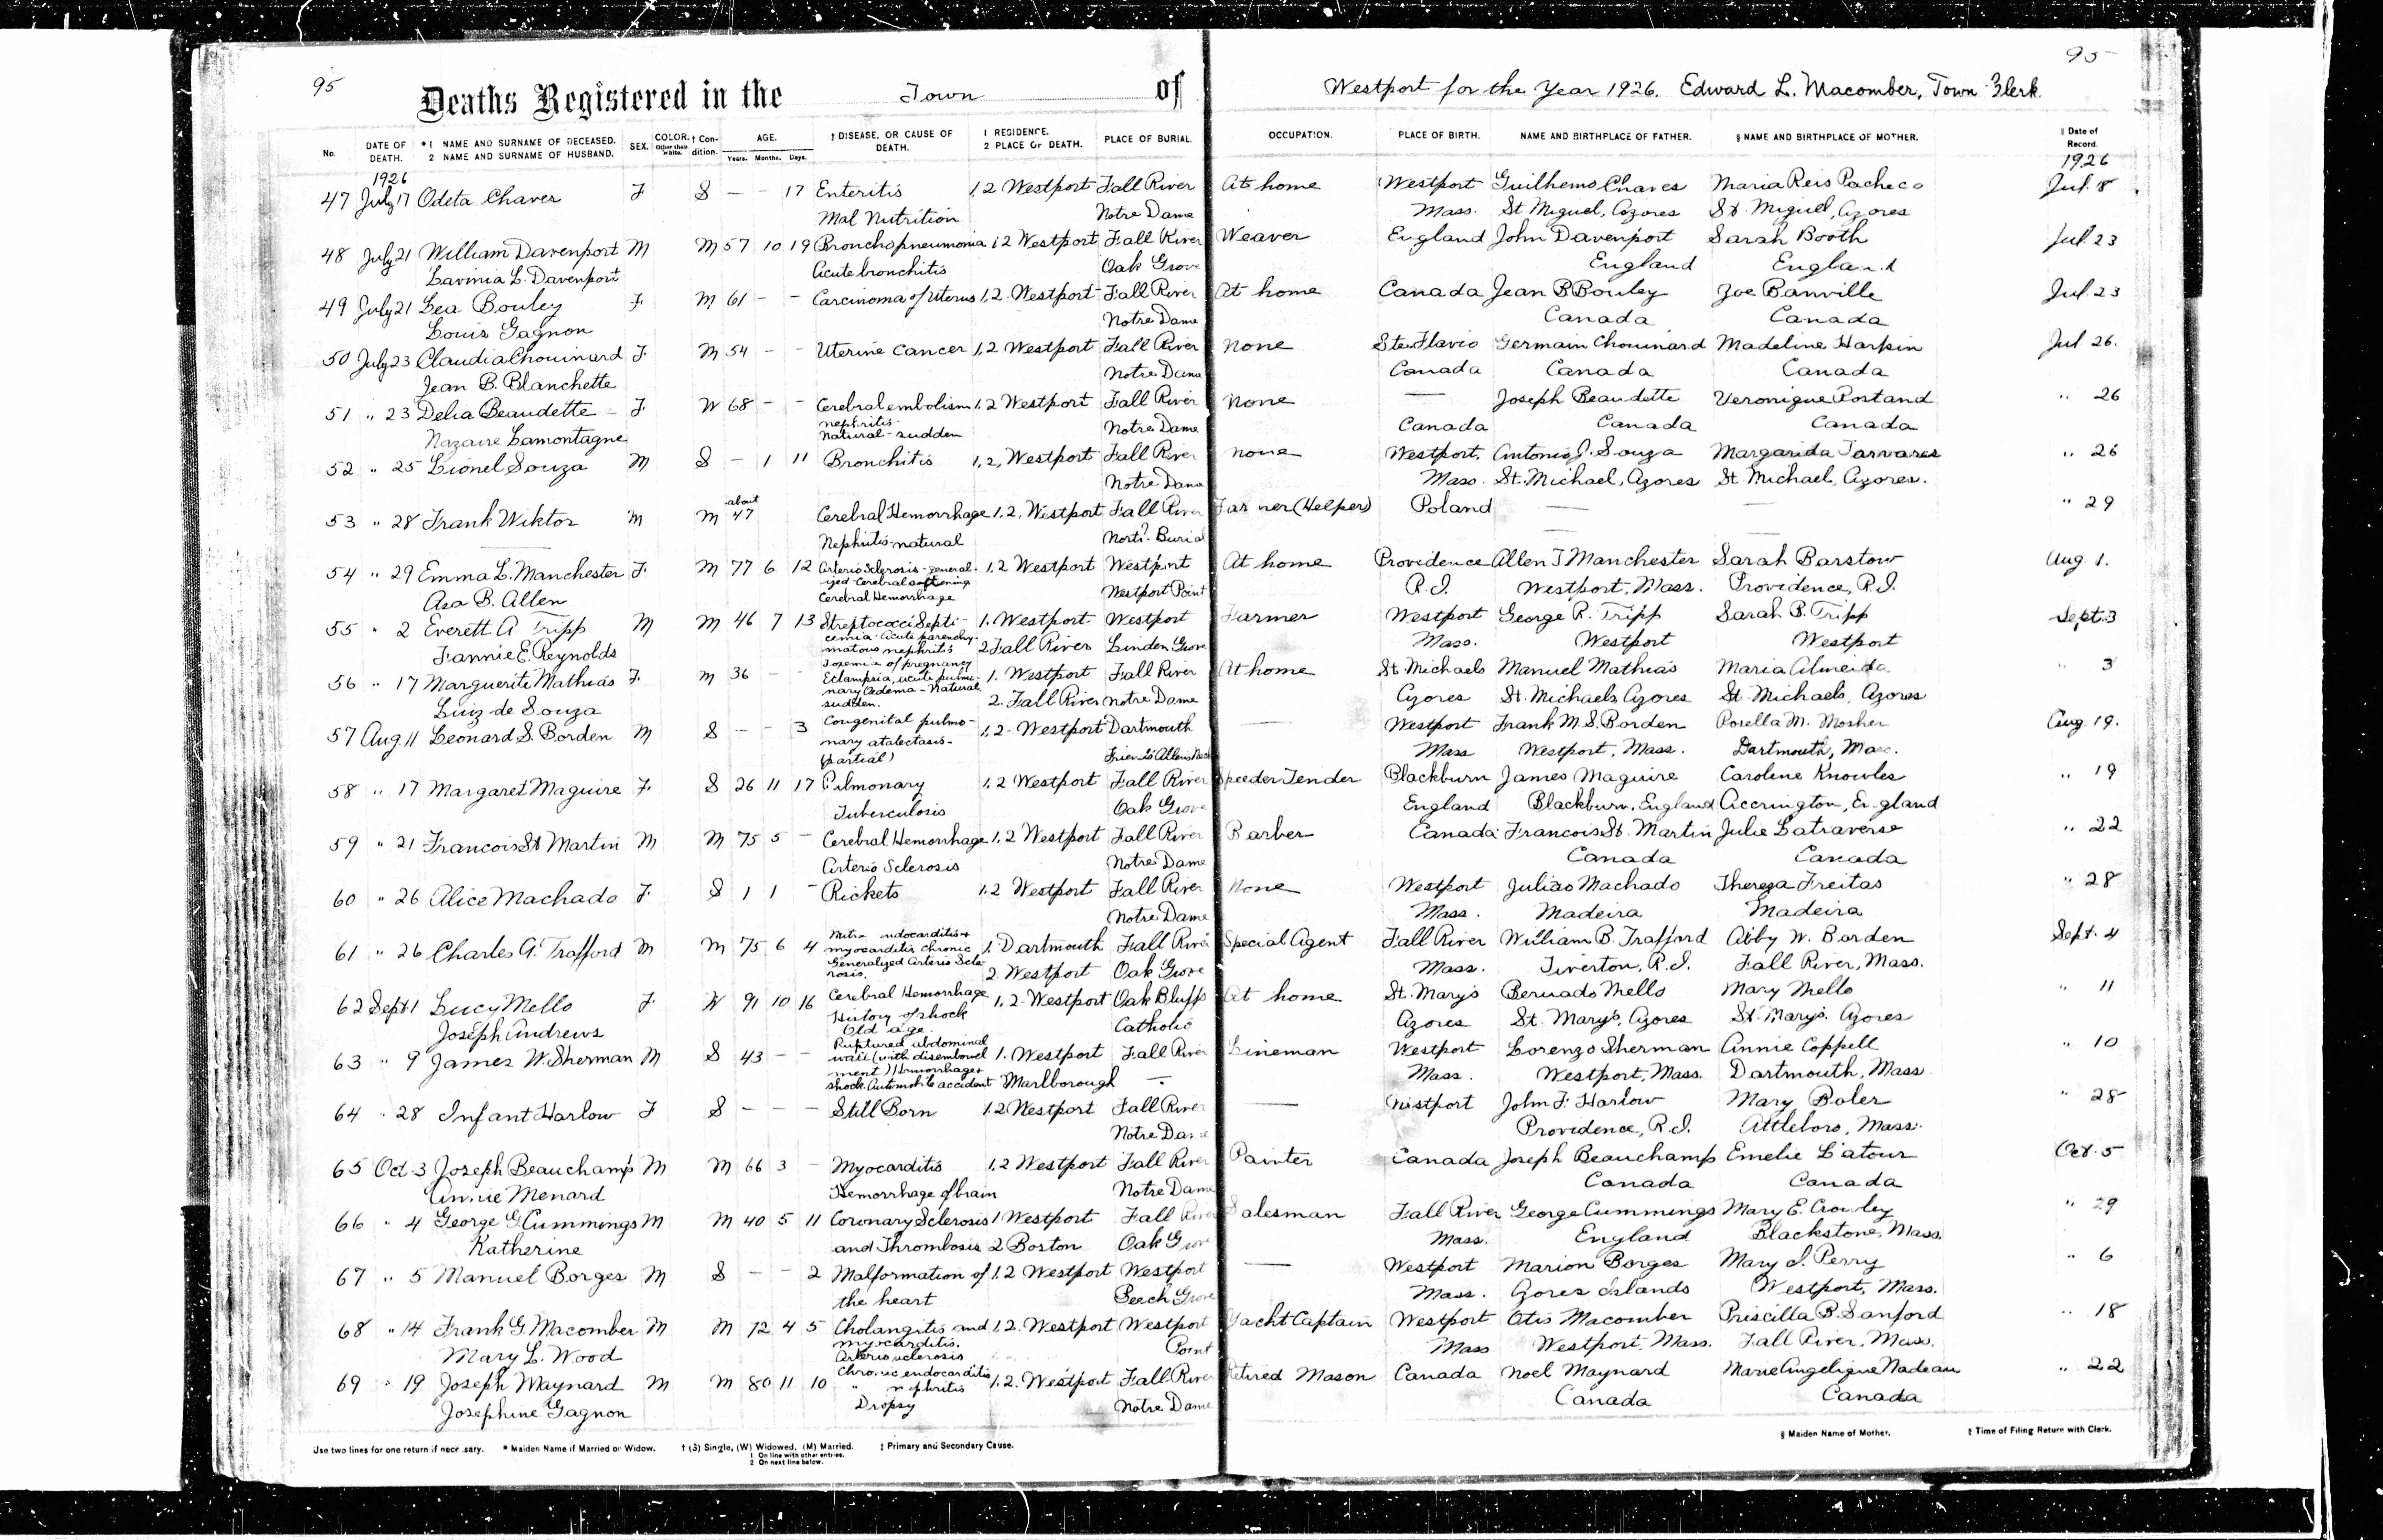 95
95
Deaths Registered in the Town of Westport for the Year 1926. Edward L. Macomber, Town Clerk.
No. DATE OF DEATH. *1 NAME AND SURNAME OF DECEASED. 2 NAME AND SURNAME OF HUSBAND. SEX. COLOR. Other than White. † Condition. AGE. Years. Months. Days. ‡ DISEASE, OR CAUSE OF DEATH. 1 RESIDENCE. 2 PLACE OF DEATH. PLACE OF BURIAL. OCCUPATION. PLACE OF BIRTH. NAME AND BIRTHPLACE OF FATHER. § NAME AND BIRTHPLACE OF MOTHER. ‖ Date of Record.
1926 1926
47 July 17 Odeta Chaves F S – – 17 Enteritis 1,2 Westport Fall River At home Westport Guilhemo Chaves Maria Reis Pacheco Jul. 8
Mal Nutrition Notre Dame Mass. St Miguel, Azores St. Miguel, Azores
48 July 21 William Davenport M M 57 10 19 Bronchopneumonia 1 2 Westport Fall River Weaver England John Davenport Sarah Booth Jul. 23
Lavinia L. Davenport Acute bronchitis Oak Grove England England
49 July 21 Lea Bouley F. M 61 – – Carcinoma of Uterus 1,2. Westport Fall River At home Canada Jean B Bouley Zoe Banville Jul. 23
Louis Gagnon Notre Dame Canada Canada
50 July 23 Claudia Chouinard F. M 54 – – Uterine Cancer 1,2 Westport Fall River None Ste Flavio Germain Chouinard Madeline Harpin Jul 26.
Jean B. Blanchette Notre Dame Canada Canada Canada
51 " 23 Delia Beaudette F. W 68 – – Cerebral embolism 1,2 Westport Fall River None — Joseph Beaudette Veronique Rostand " 26
Nazaire Lamontagne nephritis - Natural - sudden Notre Dame Canada Canada Canada
52 " 25 Lionel Souza M S – 1 11 Bronchitis 1,2, Westport Fall River none Westport, Antonio J. Souza Margarida Tarvares " 26
Notre Dame Mass. St. Michael, Azores St. Michael, Azores.
53 " 28 Frank Wiktor M M about 47 Cerebral Hemorrhage 1.2. Westport Fall River Farmer (Helper) Poland — — " 29
Nephritis-natural North Burial
54 " 29 Emma L. Manchester F. M 77 6 12 Arterio Sclerosis - general- 1.2 Westport Westport At home Providence Allen T Manchester Sarah Barstow Aug 1.
Asa B. Allen ized - Cerebral softening Cerebral Hemorrhage Westport Point R.I. Westport, Mass. Providence, R.I.
55 " 2 Everett A Tripp M M 46 7 13 Streptococci Septi- 1. Westport Westport Farmer Westport George R. Tripp Sarah B. Tripp Sept. 3
Fannie E. Reynolds cemia - Acute parenchymatous nephritis 2 Fall River Linden Grove Mass. Westport Westport
56 " 17 Marguerite Mathias F. M 36 – – Toxemia of pregnancy Eclampsia, acute pulmo- 1. Westport Fall River At home St Michaels Manuel Mathias Maria Almeida " 3
Luiz de Souza nary Oedema - Natural sudden. 2. Fall River Notre Dame Azores St. Michaels Azores St. Michaels, Azores
57 Aug. 11 Leonard S. Borden M S – – 3 Congenital pulmo- 1,2 - Westport Dartmouth — Westport Frank M. S. Borden Rosella M. Mosher Aug. 19.
nary atalectasis - (partial) Mass Westport, Mass. Dartmouth, Mass.
58 " 17 Margaret Maguire F. S 26 11 17 Pulmonary 1,2 Westport Fall River Speeder Tender Blackburn James Maguire Caroline Knowles " 19
Tuberculosis Oak Grove England Blackburn, England Accrington, England
59 " 21 Francois St Martin M M 75 5 – Cerebral Hemorrhage 1.2 Westport Fall River Barber Canada Francois St. Martin Julie Latraverse " 22
Arterio Sclerosis Notre Dame Canada Canada
60 " 26 Alice Machado F. S 1 1 – Rickets 1.2 Westport Fall River None Westport Juliao Machado Thereza Freitas " 28
Notre Dame Mass. Madeira Madeira
61 " 26 Charles A. Trafford M M 75 6 4 endocarditis + myocarditis chronic 1. Dartmouth Fall River Special Agent Fall River William B. Trafford Abby W. Borden Sept. 4
Generalized Arterio Sclerosis. 2. Westport Oak Grove Mass. Tiverton, R.I. Fall River, Mass.
62 Sept 1 Lucy Mello F. W 91 10 16 Cerebral Hemorrhage 1,2. Westport Oak Bluffs At home St. Mary's Bernado Mello Mary Mello " 11
Joseph Andrews History of shock Old age. Catholic Azores St. Mary's, Azores St. Mary's. Azores
63 " 9 James W. Sherman M S 43 – – Ruptured abdominal wall (with disembowel 1. Westport Fall River Lineman Westport Lorenzo Sherman Annie Coppell " 10
ment) Hemorrhage + shock. Automobile accident Marlborough — Mass. Westport, Mass. Dartmouth, Mass
64 " 28 Infant Harlow F S – – – Still Born 1.2 Westport Fall River — Westport John F. Harlow Mary Boler " 28
Notre Dame Providence, R.I. Attleboro, Mass.
65 Oct 3 Joseph Beauchamp M M 66 3 – Myocarditis 1.2 Westport Fall River Painter Canada Joseph Beauchamp Emelie Latour Oct. 5
Annie Menard Hemorrhage of brain Notre Dame Canada Canada
66 " 4 George G Cummings M M 40 5 11 Coronary Sclerosis 1 Westport Fall River Salesman Fall River George Cummings Mary E. Crowley " 29
Katherine and Thrombosis 2 Boston Oak Grove Mass. England Blackstone, Mass.
67 " 5 Manuel Borges M S – – 2 Malformation of 1.2 Westport Westport — Westport Marion Borges Mary I. Perry " 6
the heart Beech Grove Mass. Azores Islands Westport, Mass.
68 " 14 Frank G Macomber M M 72 4 5 Cholangitis and 1.2. Westport Westport Yacht Captain Westport Otis Macomber Priscilla B. Sanford " 18
Mary L. Wood myocarditis. Arterio sclerosis Point Mass Westport, Mass. Fall River, Mass.
69 " 19 Joseph Maynard M M 80 11 10 Chronic endocarditis 1.2. Westport Fall River Retired Mason Canada Noel Maynard Marie Angelique Nadeau " 22
Josephine Gagnon " nephritis Dropsy Notre Dame Canada Canada
Use two lines for one return if necessary. * Maiden Name if Married or Widow. † (S) Single, (W) Widowed, (M) Married. ‡ Primary and Secondary Cause. § Maiden Name of Mother. ‖ Time of Filing Return with Clerk.
1 On line with other entries.
2 On next line below.